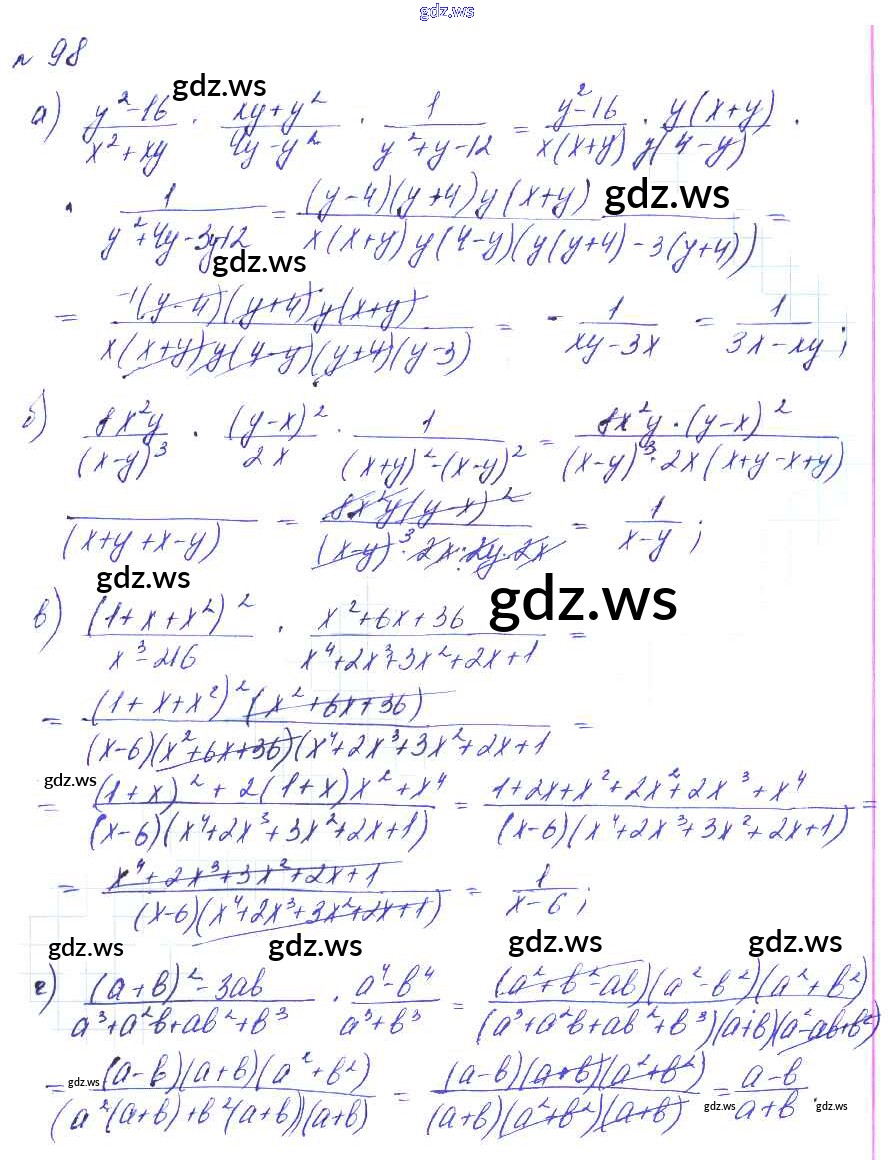 gdz.ws
№ 98
gdz.ws
а) (y²-16)/(x²+xy) · (xy+y²)/(4y-y²) · 1/(y²+y-12) = (y²-16)/(x(x+y)) · (y(x+y))/(y(4-y)) ·
· 1/(y²+4y-3y-12) = ((y-4)(y+4)y(x+y))/(x(x+y)y(4-y)(y(y+4)-3(y+4))) =
gdz.ws
gdz.ws
= (-1(y-4)(y+4)y(x+y))/(x(x+y)y(y-y)(y+4)(y-3)) = - 1/(xy-3x) = 1/(3x-xy);
б) (8x²y)/((x-y)³) · ((y-x)²)/(2x) · 1/((x+y)²-(x-y)²) = (8x²y·(y-x)²)/((x-y)³·2x(x+y-x+y)
/((x+y+x-y) = (8x²y(y-x)²)/((x-y)³·2x·2y·2x) = 1/(x-y);
gdz.ws
gdz.ws
в) ((1+x+x²)²)/(x³-216) · (x²+6x+36)/(x⁴+2x³+3x²+2x+1) =
= ((1+x+x²)²(x²+6x+36))/((x-6)(x²+6x+36)(x⁴+2x³+3x²+2x+1) =
gdz.ws
= ((1+x)²+2(1+x)x²+x⁴)/((x-6)(x⁴+2x³+3x²+2x+1)) = (1+2x+x²+2x²+2x³+x⁴)/((x-6)(x⁴+2x³+3x²+2x+1)) =
= (x⁴+2x³+3x²+2x+1)/((x-6)(x⁴+2x³+3x²+2x+1)) = 1/(x-6);
gdz.ws
gdz.ws
gdz.ws
gdz.ws
г) ((a+b)²-3ab)/(a³+a²b+ab²+b³) · (a⁴-b⁴)/(a³+b³) = ((a²+b²-ab)(a²-b²)(a²+b²))/((a³+a²b+ab²+b³)(a+b)(a²-ab+b²))
= ((a-b)(a+b)(a²+b²))/((a²(a+b)+b²(a+b))(a+b)) = ((a-b)(a+b)(a²+b²))/((a+b)(a²+b²)(a+b)) = (a-b)/(a+b).
gdz.ws
gdz.ws
gdz.ws